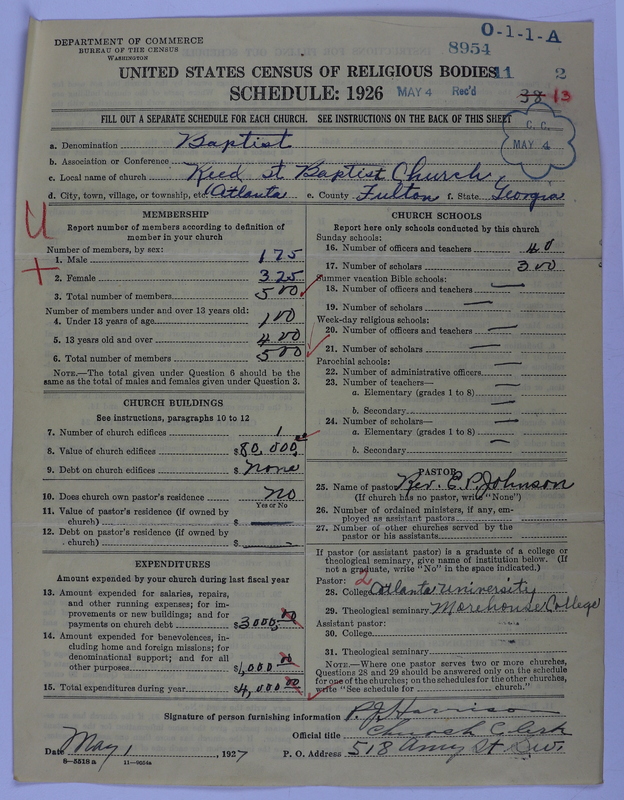 O-1-1-A
DEPARTMENT OF COMMERCE
BUREAU OF THE CENSUS
WASHINGTON
8954
UNITED STATES CENSUS OF RELIGIOUS BODIES
11 2
SCHEDULE: 1926
MAY 4 Rec'd
38 13
FILL OUT A SEPARATE SCHEDULE FOR EACH CHURCH. SEE INSTRUCTIONS ON THE BACK OF THIS SHEET
C. C.
MAY 4
a. Denomination Baptist
b. Association or Conference
c. Local name of church Reed St Baptist Church
d. City, town, village, or township, etc. Atlanta e. County Fulton f. State Georgia
MEMBERSHIP
Report number of members according to definition of
member in your church
Number of members, by sex:
1. Male 175
2. Female 325
3. Total number of members 500
Number of members under and over 13 years old:
4. Under 13 years of age 100
5. 13 years old and over 400
6. Total number of members 500
NOTE.—The total given under Question 6 should be
the same as the total of males and females given under Question 3.
CHURCH BUILDINGS
See instructions, paragraphs 10 to 12
7. Number of church edifices 1
8. Value of church edifices $80,000
9. Debt on church edifices $ none
10. Does church own pastor's residence no
Yes or No
11. Value of pastor's residence (if owned by
church) $
12. Debt on pastor's residence (if owned by
church) $
EXPENDITURES
Amount expended by your church during last fiscal year
13. Amount expended for salaries, repairs,
and other running expenses; for im-
provements or new buildings; and for
payments on church debt $3000.00
14. Amount expended for benevolences, in-
cluding home and foreign missions; for
denominational support; and for all
other purposes $1,000.00
15. Total expenditures during year $4,000.00
CHURCH SCHOOLS
Report here only schools conducted by this church
Sunday schools:
16. Number of officers and teachers 40
17. Number of scholars 300
Summer vacation Bible schools:
18. Number of officers and teachers —
19. Number of scholars —
Week-day religious schools:
20. Number of officers and teachers —
21. Number of scholars —
Parochial schools:
22. Number of administrative officers —
23. Number of teachers—
a. Elementary (grades 1 to 8) —
b. Secondary —
24. Number of scholars—
a. Elementary (grades 1 to 8) —
b. Secondary —
PASTOR
25. Name of pastor Rev. E. P. Johnson
(If church has no pastor, write "None")
26. Number of ordained ministers, if any, em-
ployed as assistant pastors
27. Number of other churches served by the
pastor or his assistants
If pastor (or assistant pastor) is a graduate of a college or
theological seminary, give name of institution below. (If
not a graduate, write "No" in the space indicated.)
Pastor: 2
28. College Atlanta University
29. Theological seminary Morehouse College
Assistant pastor:
30. College
31. Theological seminary
NOTE.—Where one pastor serves two or more churches,
Questions 28 and 29 should be answered only on the schedule
for one of the churches; on the schedules for the other churches,
write "See schedule for church."
Signature of person furnishing information P. J. Harrison
Official title Church Clerk
Date May 1, 1927 P. O. Address 518 Amy St S.W.
8—5518 a 11—9554a